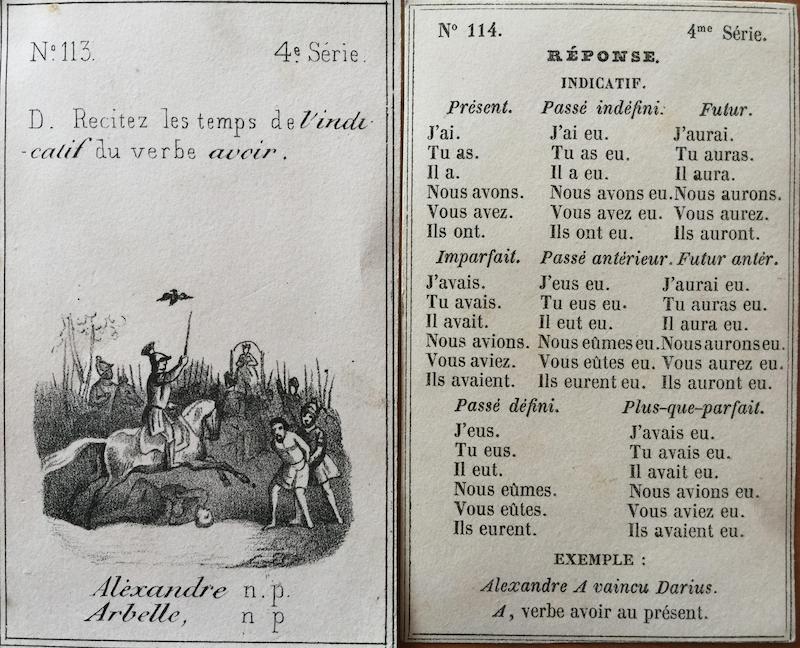 Nº 113. 4e Série.
D. Recitez les temps de l'indi-
-catif du verbe avoir.
Alèxandre n.p.
Arbelle, n p
Nº 114. 4me Série.
RÉPONSE.
INDICATIF.
Présent. Passé indéfini. Futur.
J'ai. J'ai eu. J'aurai.
Tu as. Tu as eu. Tu auras.
Il a. Il a eu. Il aura.
Nous avons. Nous avons eu. Nous aurons.
Vous avez. Vous avez eu. Vous aurez.
Ils ont. Ils ont eu. Ils auront.
Imparfait. Passé antérieur. Futur antér.
J'avais. J'eus eu. J'aurai eu.
Tu avais. Tu eus eu. Tu auras eu.
Il avait. Il eut eu. Il aura eu.
Nous avions. Nous eûmes eu. Nous aurons eu.
Vous aviez. Vous eûtes eu. Vous aurez eu.
Ils avaient. Ils eurent eu. Ils auront eu.
Passé défini. Plus-que-parfait.
J'eus. J'avais eu.
Tu eus. Tu avais eu.
Il eut. Il avait eu.
Nous eûmes. Nous avions eu.
Vous eûtes. Vous aviez eu.
Ils eurent. Ils avaient eu.
EXEMPLE :
Alexandre A vaincu Darius.
A, verbe avoir au présent.